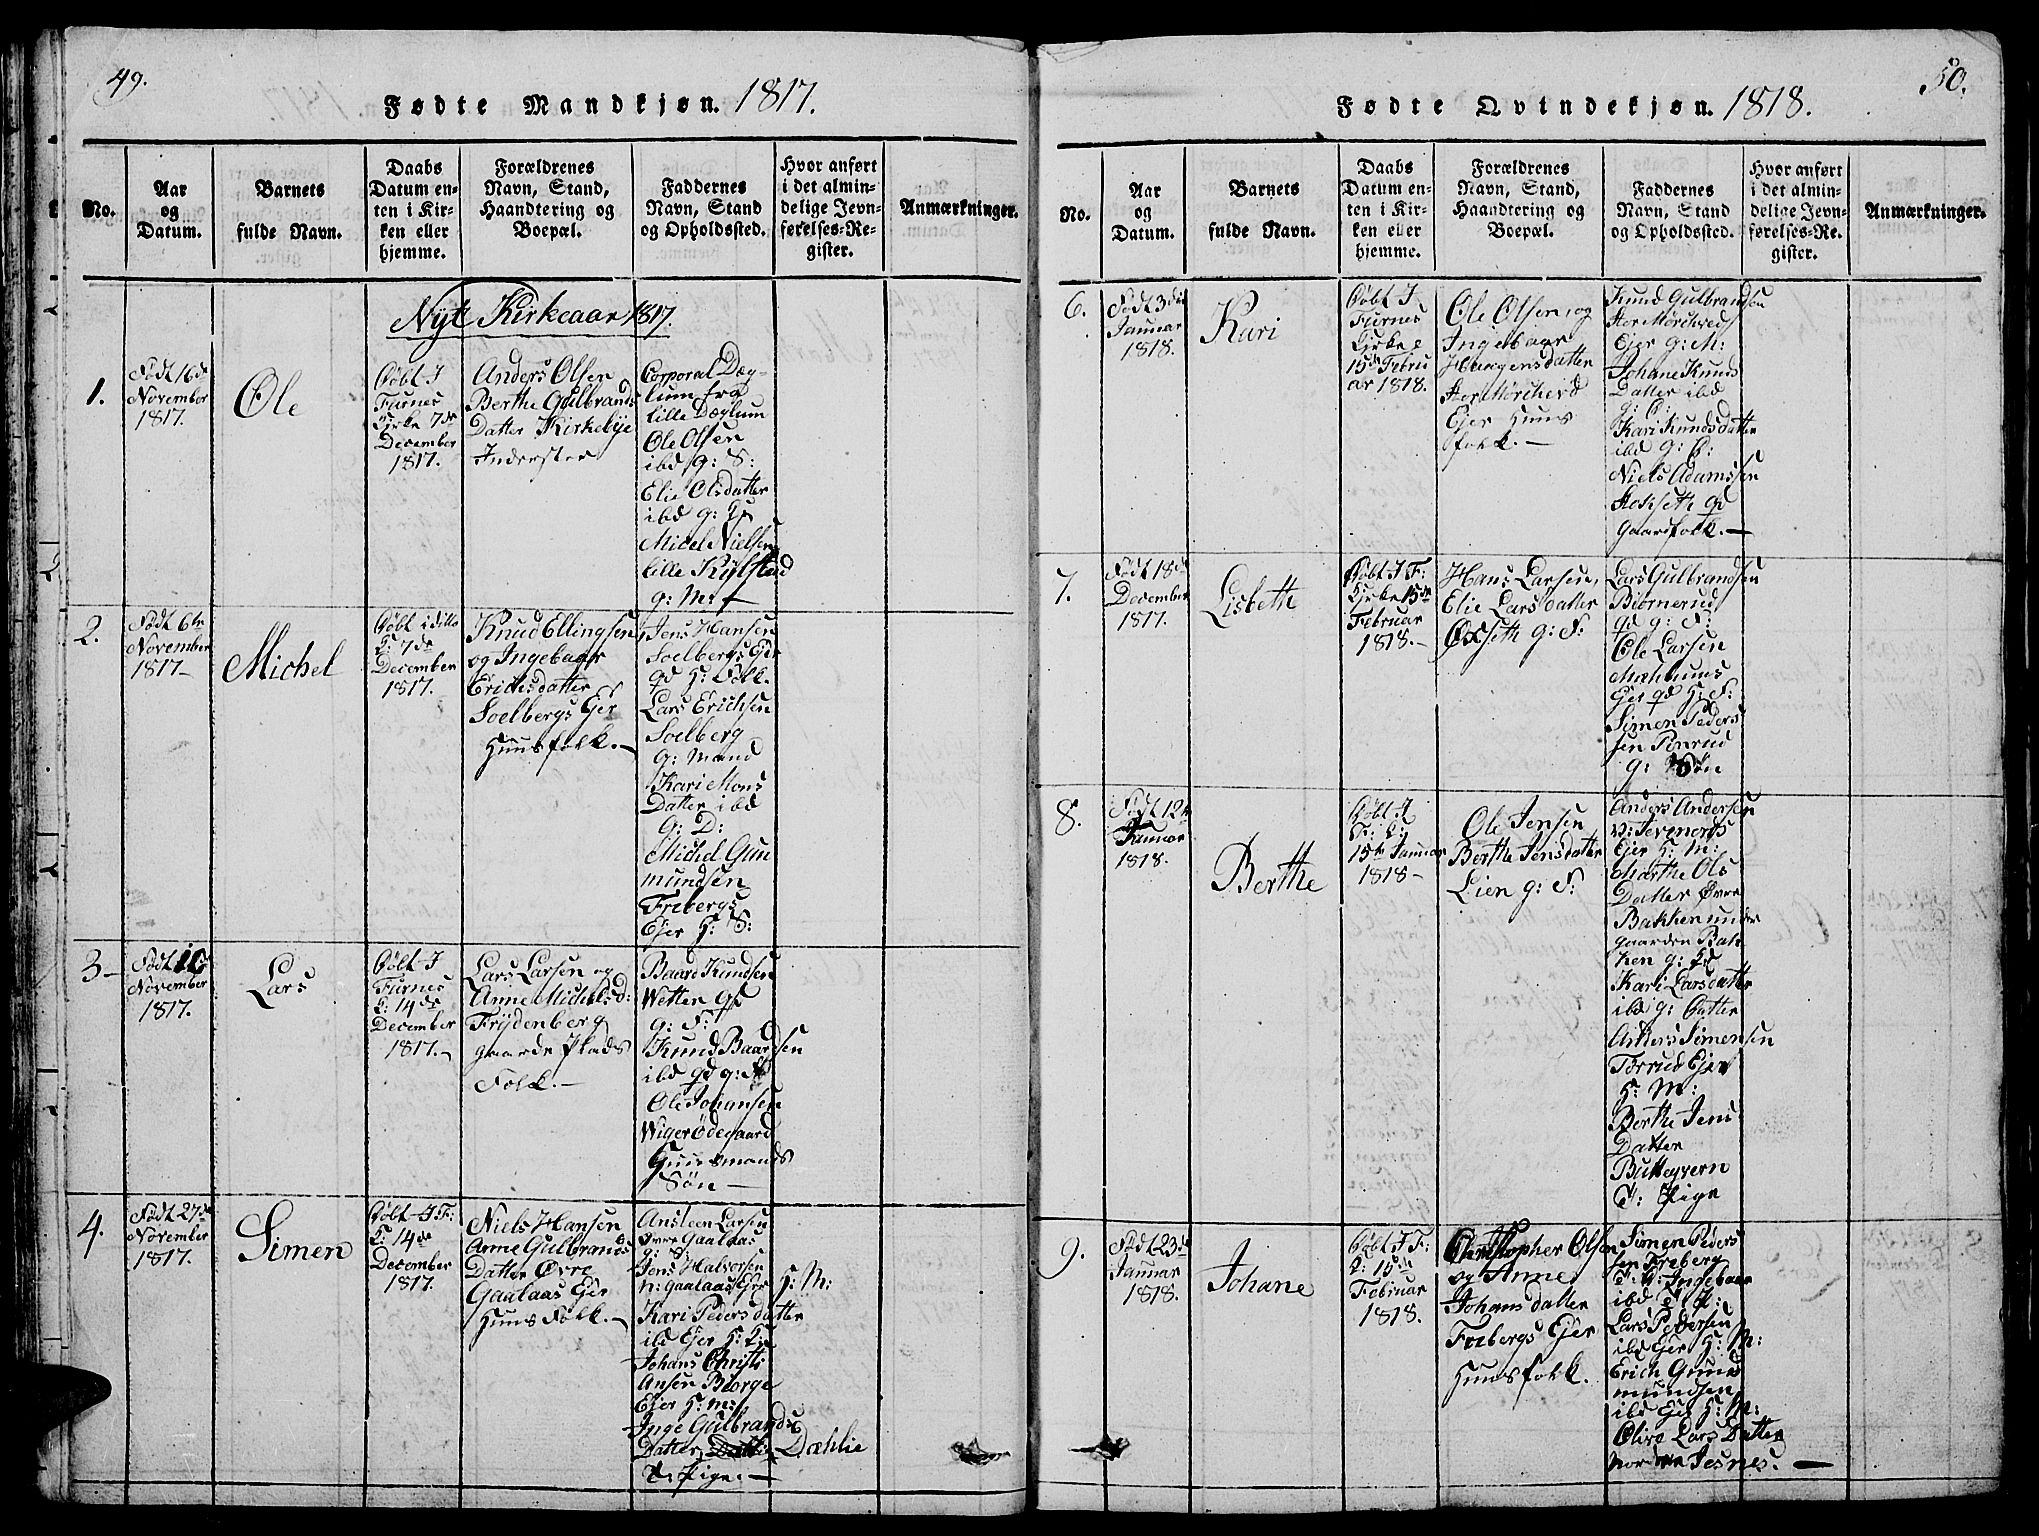 49.
Fødte Mandkjøn. 1817.
No.
Aar
og
Datum.
Barnets
fulde Navn.
Daabs
Datum en-
ten i Kir-
ken eller
hjemme.
Forældrenes
Navn, Stand,
Haandtering og
Boepæl.
Faddernes
Navn, Stand
og Opholdssted.
Hvor anført
i det almin-
delige Jevn-
førelses-Re-
gister.
Anmærkninger.
Nyt Kirkeaar 1817.
1.
Født 16de
November
1817.
Ole
Døbt I
Furnes
Kirke 7de
December
1817.
Anders Olsen
Berthe Gulbrands
Datter Kirkebye
Inderster
Corporal Dæg-
lum fra
lille Dæglum
Ole Olsen
ibd g: S:
Elie Olsdatter
ibd g:
Michel Nielsen
lille Kylstad
g: M:
2.
Født 6te
November
1817
Michel
Døbt i ditto
K: 7de
December
1817.
Knud Ellingsen
og Ingebaar
Erichsdatter
Soelbergs Ejer
Huusfolk.
Jens Hansen
Soelbergs Ejer
gd H: Folk.
Lars Erichsen
Soelberg
g: Mand
Kari Mons
Datter ibd
g: D:
Michel Gun
mundsen
Frebergs
Ejer H: S:
3
Født 10
November
1817.
Lars
Døbt I
Furnes
K: 14de
December
1817.
Lars Larsen og
Anne Michelsd:
Frydenberg
gaarde Plads
Folk.
Baard Knudsen
Wetter gd
g: F:
Knud Baardsen
ibd gd g: F
Ole Johansen
Wiger Ødegaard
Huusmands
Søn
4.
Født 27de
November
1817.
Simen
Døbt I F:
K: 14de
December
1817.
Niels Hansen
Anne Gulbrands
Datter Øvre
Gaalaas Ejer
Huus Folk.
Ansteen Larsen
Øvre Gaalaas
g: S:
Jens Halvorsen
n: Gaalaas Ejer H: M:
Kari Peders datter
ibd Ejer H: K:
Johans Christi
Ansen Biørge
Ejer H: M:
Inge Gulbrands
Datter Dæhlie
T: Pige.
50.
Fødte Qvindekjøn. 1818.
No.
Aar
og
Datum.
Barnets
fulde Navn.
Daabs
Datum en-
ten i Kir-
ken eller
hjemme.
Forældrenes
Navn, Stand,
Haandtering og
Boepæl.
Faddernes
Navn, Stand
og Opholdssted.
Hvor anført
i det almin-
delige Jevn-
førelses-Re-
gister.
Anmærkninger.
6.
Født 3die
Januar
1818.
Kari
Døbt I
Furnes
Kirke
15de Febru
ar 1818.
Ole Olsen, og
Ingebaar
Haagensdatter
Stor Mörchved
Ejer Huus
folk.
Knud Gulbrandsen
Stor Mörchved
Ejer g: M:
Johane Knuds
Datter ibd
g: D:
Kari Knudsdatter
ibd g: D:
Niels Adamssen
Stokseth gd
Gaardfolk.
7.
Født 18de
December
1817.
Lisbeth
Døbt I F:
Kirke 15de
Februar
1818.
Hans Larsen,
Elie Larsdatter
Øxseth g: F:
Lars Gulbrandsen
Biørnerud
gd g: F:
Ole Larsen
Mæhlums
Ejer gd H: F:
Simen Peders
sen Ponrud
g: Søn
8.
Født 12te
Januar
1818.
Berthe
Døbt I
F: K:
15de Januar
1818
Ole Jensen
Berthe Jensdatter
Lien g: F:
Anders Andersen
Ejer H: M:
Marthe Ols
Datter Øvre
Bakken under
gaarden Bak
ken g: K:
Kari Larsdatter
ibd g: Datter
Anders Simensen
Torrud Ejer
H: M:
Berthe Jens
Datter
T: Pige
9.
Født 23de
Januar
1818.
Johane
Døbt I F:
K: 15de
Februar
1818.
Christopher Olsen
og Anne
Johansdatter
Frebergs Ejer
Huusfolk.
Simen Peders
sen Freberg
Ingebaar
ibd
Lars Pedersen
ibd Ejer H: M:
Erich Gund
mundsen
ibd Ejer H: M:
Olive Lars Datter
Nordre Jesnes.